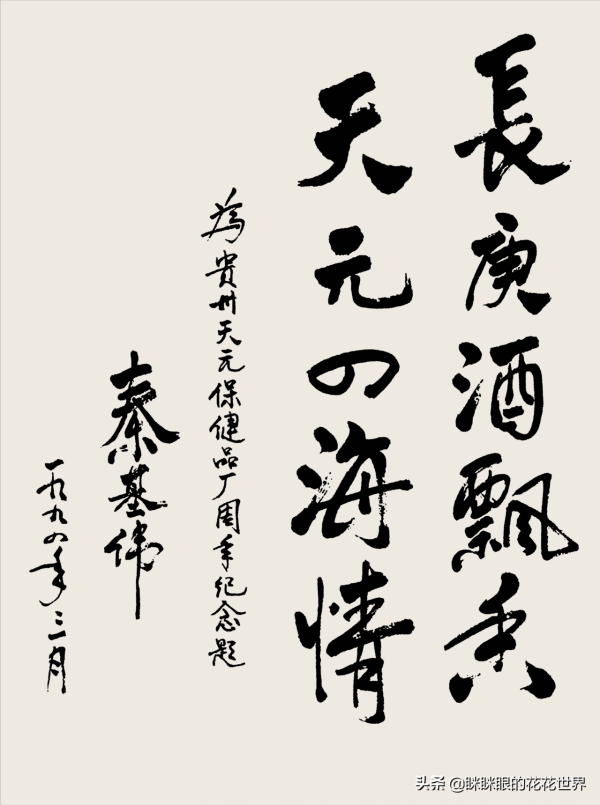 長庚酒飄香
天元四海情
為贵州天元保健品厂周年纪念题
秦基伟
一九九四年三月
头条 @眯眯眼的花花世界